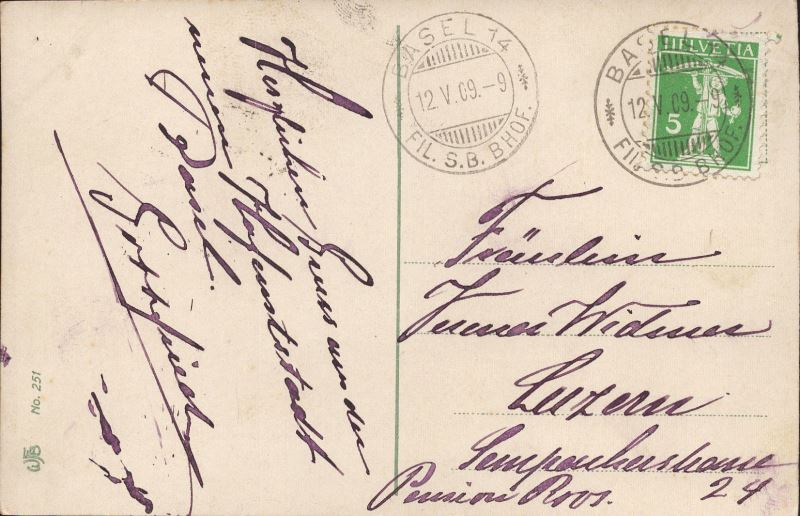 Herzlichen Gruss aus der
neuen Hafenstadt
Basel.
Gottfried
No. 251
BASEL 14
12.V.09.-9
FIL. S.B. BHOF.
BASEL
12.V.09.-9
FIL. S.B. BHOF.
HELVETIA
5
Fräulein
Verena Widmer
Luzern
Sempacherstrasse
24
Pension Roos.